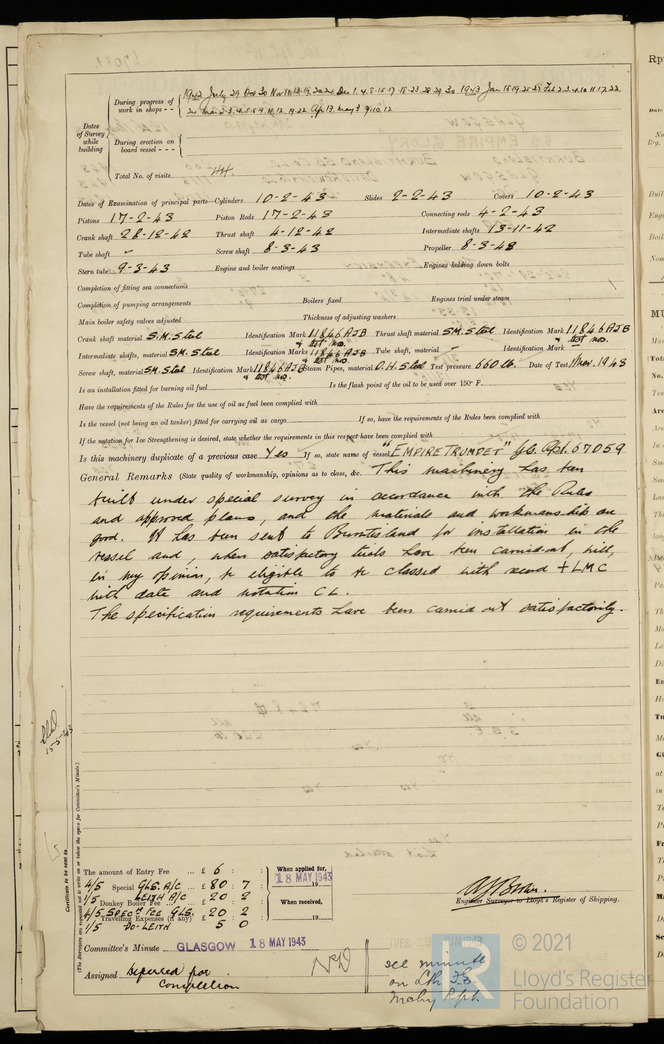 During progress of work in shops - - 1942 July 29 Oct 30 Nov 11 13 19 20 24 Dec 1. 4. 8. 15. 17 18 23 28 29 30 1943 Jan 15 19 25 27 Feb 2. 3. 4. 10 11. 17. 22
Dates of Survey while building
During erection on board vessel - - -
Total No. of visits 44
Dates of Examination of principal parts—Cylinders 10-2-43 Slides 9-2-43 Covers 10-2-43
Pistons 17-2-43 Piston Rods 17-2-43 Connecting rods 4-2-43
Crank shaft 28-12-42 Thrust shaft 4-12-42 Intermediate shafts 13-11-42
Tube shaft - Screw shaft 8-3-43 Propeller 8-3-43
Stern tube 9-3-43 Engine and boiler seatings Engines holding down bolts
Completion of fitting sea connections
Completion of pumping arrangements Boilers fixed Engines tried under steam
Main boiler safety valves adjusted Thickness of adjusting washers
Crank shaft material S.M. Steel Identification Mark 11846 AJB & tst no. Thrust shaft material SM. Steel Identification Mark 11846 AJB & tst no.
Intermediate shafts, material SM. Steel Identification Marks 11846 AJB & tst no. Tube shaft, material - Identification Mark -
Screw shaft, material SM. Steel Identification Mark 11846 AJB & tst no. Steam Pipes, material O.H. Steel Test pressure 660 lb. Date of Test Mar. 1943
Is an installation fitted for burning oil fuel Is the flash point of the oil to be used over 150° F.
Have the requirements of the Rules for the use of oil as fuel been complied with
Is the vessel (not being an oil tanker) fitted for carrying oil as cargo If so, have the requirements of the Rules been complied with
If the notation for Ice Strengthening is desired, state whether the requirements in this respect have been complied with
Is this machinery duplicate of a previous case Yes If so, state name of vessel "EMPIRE TRUMPET" Gls. Rpt. 67059
General Remarks (State quality of workmanship, opinions as to class, &c. This machinery has been
built under special survey in accordance with the Rules
and approved plans, and the materials and workmanship are
good. It has been sent to Burntisland for installation in the
vessel and, when satisfactory trials have been carried out, will,
in my opinion, be eligible to be classed with record + LMC
with date and notation CL.
The specification requirements have been carried out satisfactorily.
15-5-43
Certificate to be sent to
(The Surveyors are requested not to write on or below the space for Committee's Minute.)
The amount of Entry Fee ... £ 6 : :
4/5 Special GLS. A/C ... £ 80 : 7 :
1/5 LEITH A/C 20 2
Donkey Boiler Fee ... £
4/5 SPECN FEE GLS. 20 2
Travelling Expenses (if any) £
1/5 DO. LEITH 5 0
When applied for,
18 MAY 1943
19
When received,
19
Engineer Surveyor to Lloyd's Register of Shipping.
Committee's Minute GLASGOW 18 MAY 1943
Assigned Deferred for
completion
see minute
on Lth F.E.
Mchy Rpt.
© 2021
Lloyd's Register
Foundation